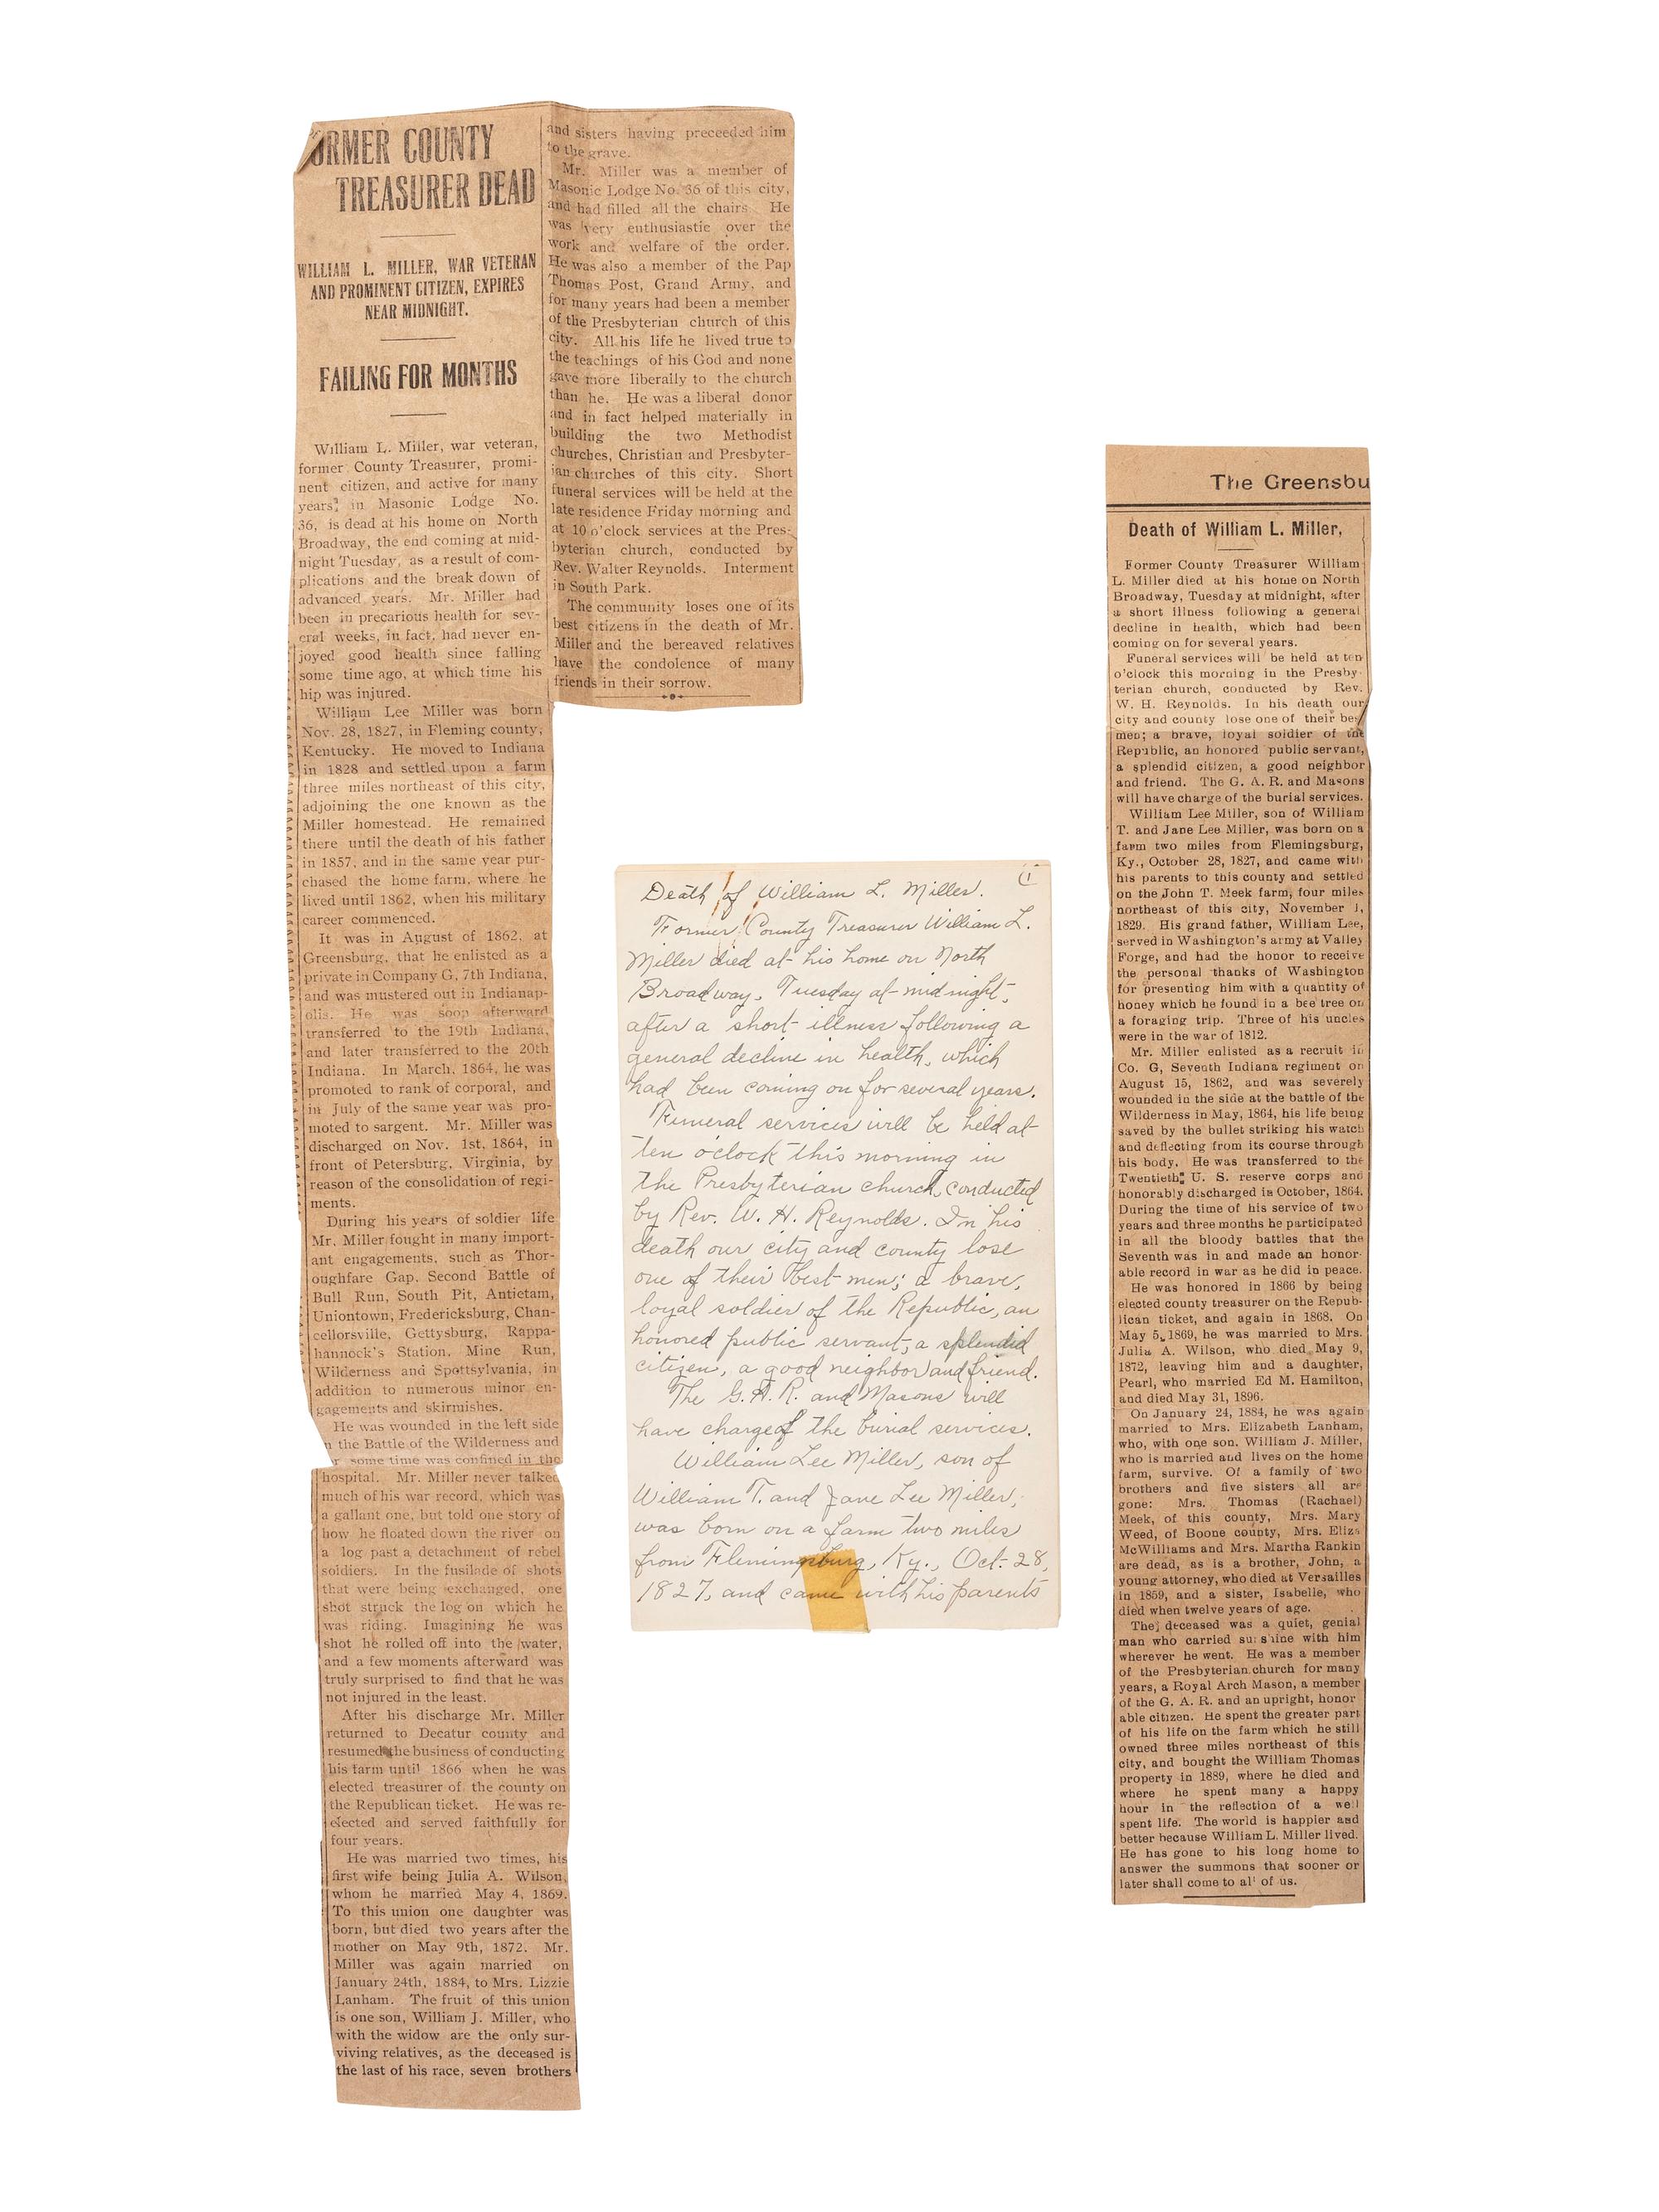 ORMER COUNTY
TREASURER DEAD
WILLIAM L. MILLER, WAR VETERAN
AND PROMINENT CITIZEN, EXPIRES
NEAR MIDNIGHT.
FAILING FOR MONTHS
William L. Miller, war veteran,
former County Treasurer, promi-
nent citizen, and active for many
years, in Masonic Lodge No.
36, is dead at his home on North
Broadway, the end coming at mid-
night Tuesday, as a result of com-
plications and the break down of
advanced years. Mr. Miller had
been in precarious health for sev-
eral weeks, in fact, had never en-
joyed good health since falling
some time ago, at which time his
hip was injured.
William Lee Miller was born
Nov. 28, 1827, in Fleming county,
Kentucky. He moved to Indiana
in 1828 and settled upon a farm
three miles northeast of this city,
adjoining the one known as the
Miller homestead. He remained
there until the death of his father
in 1857, and in the same year pur-
chased the home farm, where he
lived until 1862, when his military
career commenced.
It was in August of 1862, at
Greensburg, that he enlisted as a
private in Company G, 7th Indiana,
and was mustered out in Indianap-
olis. He was soon afterward
transferred to the 19th Indiana,
and later transferred to the 20th
Indiana. In March, 1864, he was
promoted to rank of corporal, and
in July of the same year was pro-
moted to sargent. Mr. Miller was
discharged on Nov. 1st, 1864, in
front of Petersburg, Virginia, by
reason of the consolidation of regi-
ments.
During his years of soldier life
Mr. Miller fought in many import-
ant engagements, such as Thor-
oughfare Gap, Second Battle of
Bull Run, South Pit, Antietam,
Uniontown, Fredericksburg, Chan-
cellorsville, Gettysburg, Rappa-
hannock's Station, Mine Run,
Wilderness and Spottsylvania, in
addition to numerous minor en-
gagements and skirmishes.
He was wounded in the left side
n the Battle of the Wilderness and
r some time was confined in the
hospital. Mr. Miller never talked
much of his war record, which was
a gallant one, but told one story of
how he floated down the river on
a log past a detachment of rebel
soldiers. In the fusilade of shots
that were being exchanged, one
shot struck the log on which he
was riding. Imagining he was
shot he rolled off into the water,
and a few moments afterward was
truly surprised to find that he was
not injured in the least.
After his discharge Mr. Miller
returned to Decatur county and
resumed the business of conducting
his farm until 1866 when he was
elected treasurer of the county on
the Republican ticket. He was re-
elected and served faithfully for
four years.
He was married two times, his
first wife being Julia A. Wilson,
whom he married May 4, 1869.
To this union one daughter was
born, but died two years after the
mother on May 9th, 1872. Mr.
Miller was again married on
January 24th, 1884, to Mrs. Lizzie
Lanham. The fruit of this union
is one son, William J. Miller, who
with the widow are the only sur-
viving relatives, as the deceased is
the last of his race, seven brothers
and sisters having preceeded him
to the grave.
Mr. Miller was a member of
Masonic Lodge No. 36 of this city,
and had filled all the chairs He
was very enthusiastic over the
work and welfare of the order.
He was also a member of the Pap
Thomas Post, Grand Army, and
for many years had been a member
of the Presbyterian church of this
city. All his life he lived true to
the teachings of his God and none
gave more liberally to the church
than he. He was a liberal donor
and in fact helped materially in
building the two Methodist
churches, Christian and Presbyter-
ian churches of this city. Short
funeral services will be held at the
late residence Friday morning and
at 10 o'clock services at the Pres-
byterian church, conducted by
Rev. Walter Reynolds. Interment
in South Park.
The community loses one of its
best citizens in the death of Mr.
Miller and the bereaved relatives
have the condolence of many
friends in their sorrow.
1
Death of William L. Miller.
Former County Treasurer William L.
Miller died at his home on North
Broadway, Tuesday at midnight,
after a short illness following a
general decline in health, which
had been coming on for several years.
Funeral services will be held at
ten o'clock this morning in
the Presbyterian church, conducted
by Rev. W. H. Reynolds. In his
death our city and county lose
one of their best men; a brave,
loyal soldier of the Republic, an
honored public servant, a splendid
citizen, a good neighbor and friend.
The G.A.R. and Masons will
have charge of the burial services.
William Lee Miller, son of
William T. and Jane Lee Miller,
was born on a farm two miles
from Flemingsburg, Ky., Oct. 28,
1827, and came with his parents
The Greensbu
Death of William L. Miller,
Former County Treasurer William
L. Miller died at his home on North
Broadway, Tuesday at midnight, after
a short illness following a general
decline in health, which had been
coming on for several years.
Funeral services will be held at ten
o'clock this morning in the Presby-
terian church, conducted by Rev.
W. H. Reynolds. In his death our
city and county lose one of their bes
men; a brave, loyal soldier of the
Republic, an honored public servant,
a splendid citizen, a good neighbor
and friend. The G. A. R. and Masons
will have charge of the burial services.
William Lee Miller, son of William
T. and Jane Lee Miller, was born on a
farm two miles from Flemingsburg,
Ky., October 28, 1827, and came with
his parents to this county and settled
on the John T. Meek farm, four miles
northeast of this city, November 1,
1829. His grand father, William Lee,
served in Washington's army at Valley
Forge, and had the honor to receive
the personal thanks of Washington
for presenting him with a quantity of
honey which he found in a bee tree on
a foraging trip. Three of his uncles
were in the war of 1812.
Mr. Miller enlisted as a recruit in
Co. G, Seventh Indiana regiment on
August 15, 1862, and was severely
wounded in the side at the battle of the
Wilderness in May, 1864, his life being
saved by the bullet striking his watch
and deflecting from its course through
his body. He was transferred to the
Twentieth U. S. reserve corps and
honorably discharged in October, 1864.
During the time of his service of two
years and three months he participated
in all the bloody battles that the
Seventh was in and made an honor-
able record in war as he did in peace.
He was honored in 1866 by being
elected county treasurer on the Repub-
lican ticket, and again in 1868. On
May 5, 1869, he was married to Mrs.
Julia A. Wilson, who died May 9,
1872, leaving him and a daughter,
Pearl, who married Ed M. Hamilton,
and died May 31, 1896.
On January 24, 1884, he was again
married to Mrs. Elizabeth Lanham,
who, with one son, William J. Miller,
who is married and lives on the home
farm, survive. Of a family of two
brothers and five sisters all are
gone: Mrs. Thomas (Rachael)
Meek, of this county, Mrs. Mary
Weed, of Boone county, Mrs. Eliza
McWilliams and Mrs. Martha Rankin
are dead, as is a brother, John, a
young attorney, who died at Versailles
in 1859, and a sister, Isabelle, who
died when twelve years of age.
The deceased was a quiet, genial
man who carried su shine with him
wherever he went. He was a member
of the Presbyterian church for many
years, a Royal Arch Mason, a member
of the G. A. R. and an upright, honor
able citizen. He spent the greater part
of his life on the farm which he still
owned three miles northeast of this
city, and bought the William Thomas
property in 1889, where he died and
where he spent many a happy
hour in the reflection of a well
spent life. The world is happier and
better because William L. Miller lived.
He has gone to his long home to
answer the summons that sooner or
later shall come to all of us.